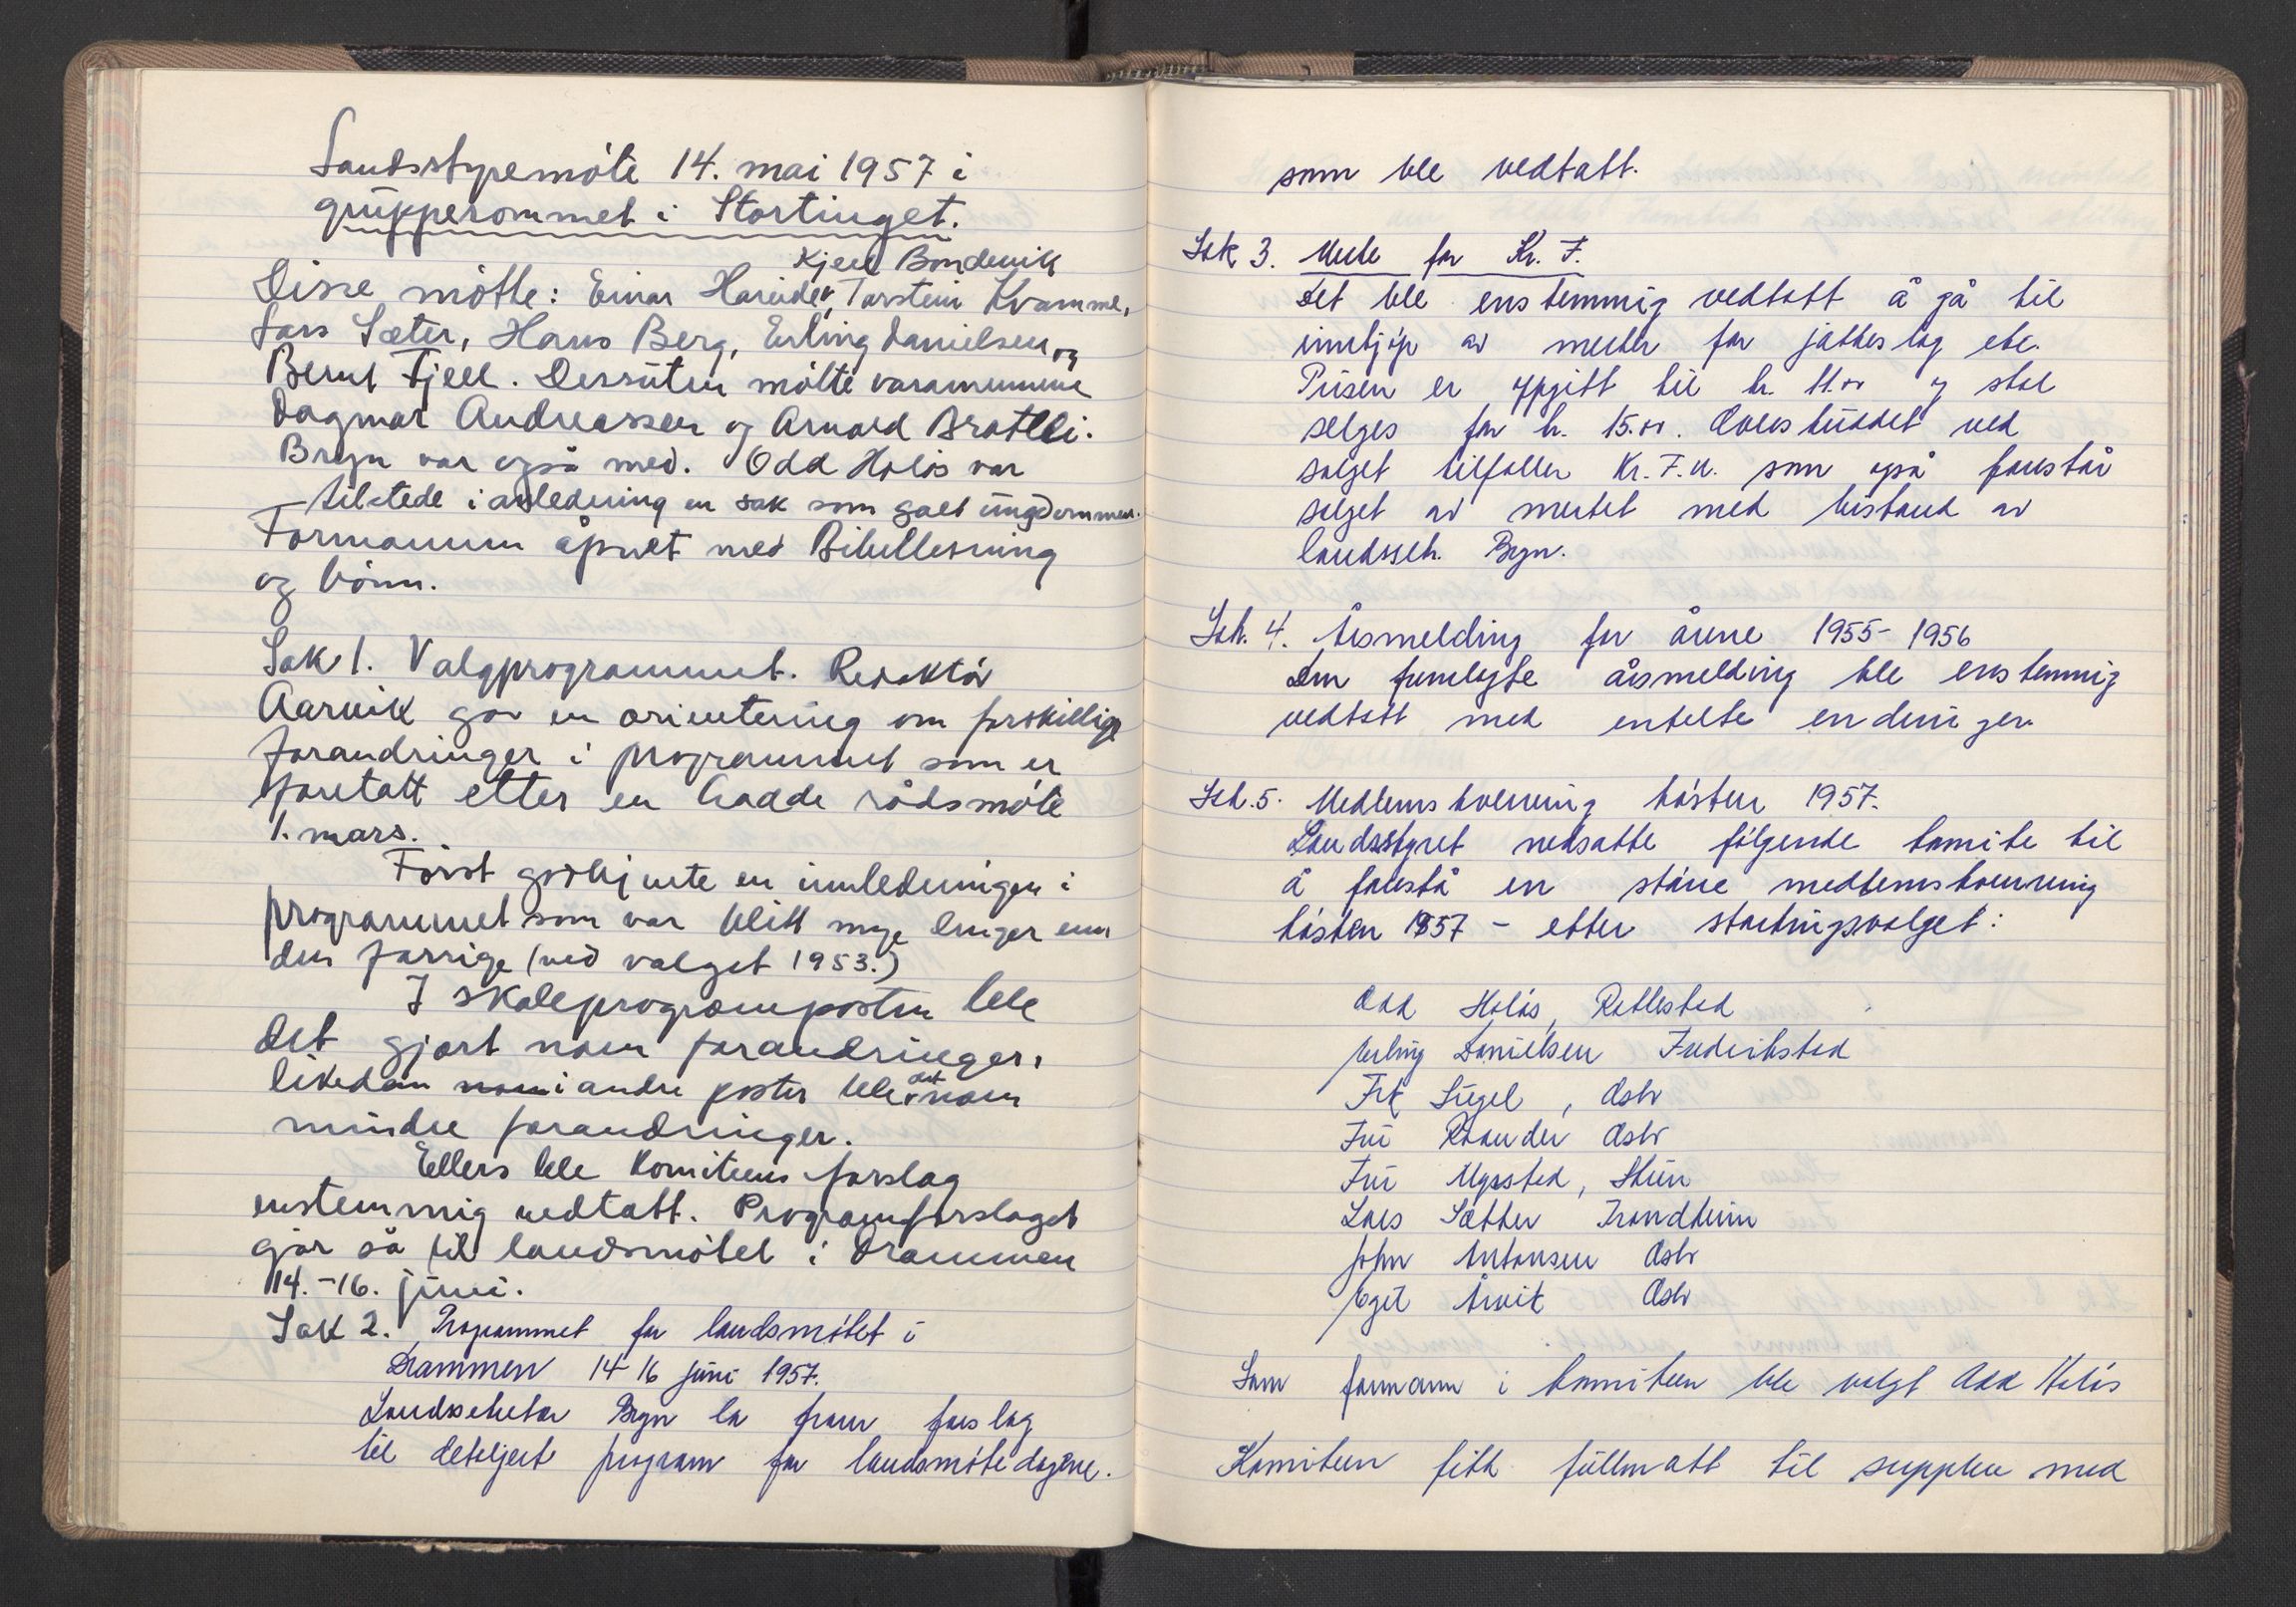 Landsstyremöte 14. mai 1957 i
grupperommet i Stortinget.
Kjell Bondevik
Disse møtte: Einar Hareide, Torstein Kvamme,
Lars Sæter, Hans Berg, Erling Danielsen og
Bernt Fjell. Dessuten møtte varamennene
Dagmar Andreassen og Arnold Bratlli.
Bryn var også med. Odd Holås var
tilstede i anledning en sak som galt ungdommen.
Formannen åpnet med Bibellesning
og bönn.
Sak 1. Valgprogrammet. Redaktör
Aarvik gav en orientering om forskillige
forandringer i programmet som er
foretatt etter en hadde rådsmöte
1. mars.
Först godkjente en innledningen i
programmet som var blitt mye lenger enn
den forrige (ved valget 1953.)
I skoleprogramposten ble
det gjort noen forandringer,
likedan noen i andre poster ble det noen
mindre forandringer.
Ellers ble komiteens forslag
enstemmig vedtatt. Programforslaget
går så til landsmötet i Drammen
14.-16. juni.
Sak 2. Programmet for landsmötet i
Drammen 14-16 juni 1957.
Landssekretær Bryn la fram forslag
til detaljert program for landsmötedagene.
som ble vedtatt.
Sak 3. Merke for Kr. F.
Det ble enstemmig vedtatt å gå til
innkjöp av merker for jakkeslag etc.
Prisen er oppgitt til kr. 11.00 og skal
selges for kr. 15.00. Overskuddet ved
salget tilfaller Kr.F.U. som også forestår
salget av merket med bistand av
landssekr. Bryn.
Sak. 4. Årsmelding for årene 1955-1956
Den fremlagte årsmelding ble enstemmig
vedtatt med enkelte endringer.
Sak. 5. Medlemsverving hösten 1957.
Landsstyret nedsatte fölgende komite til
å forestå en större medlemsverving
hösten 1957 - etter stortingsvalget:
Odd Holås, Rakkestad
Erling Danielsen Fredrikstad
Frk Siegel, Oslo
Fru Oslo
Fru Mysstad, Skien
Lars Sætter Trondheim
John Antonsen Oslo
Egil Årvik Oslo
Som formann i komiteen ble valgt Odd Holås
Komiteen fikk fullmakt til supplere med